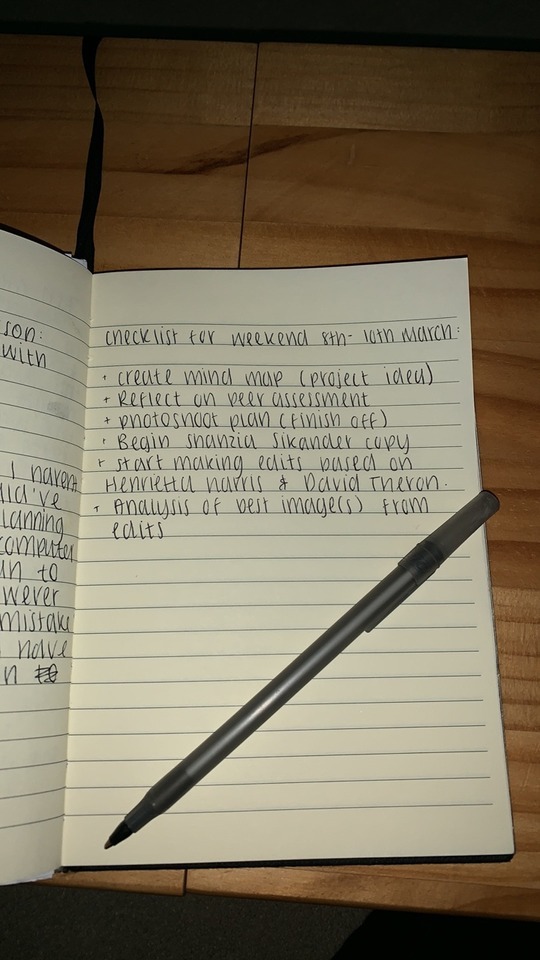 son:
with
I haven
did've
lanning
computer
un to
wever
mistake
have
n
checklist for weekend 8th- 10th March:
+ create mind map (project idea)
+ Reflect on peer assessment
+ photoshoot plan (finish off)
+ Begin shahzia sikander copy
+ start making edits based on
Henrietta harris & David Theron.
+ Analysis of best image(s) from
edits